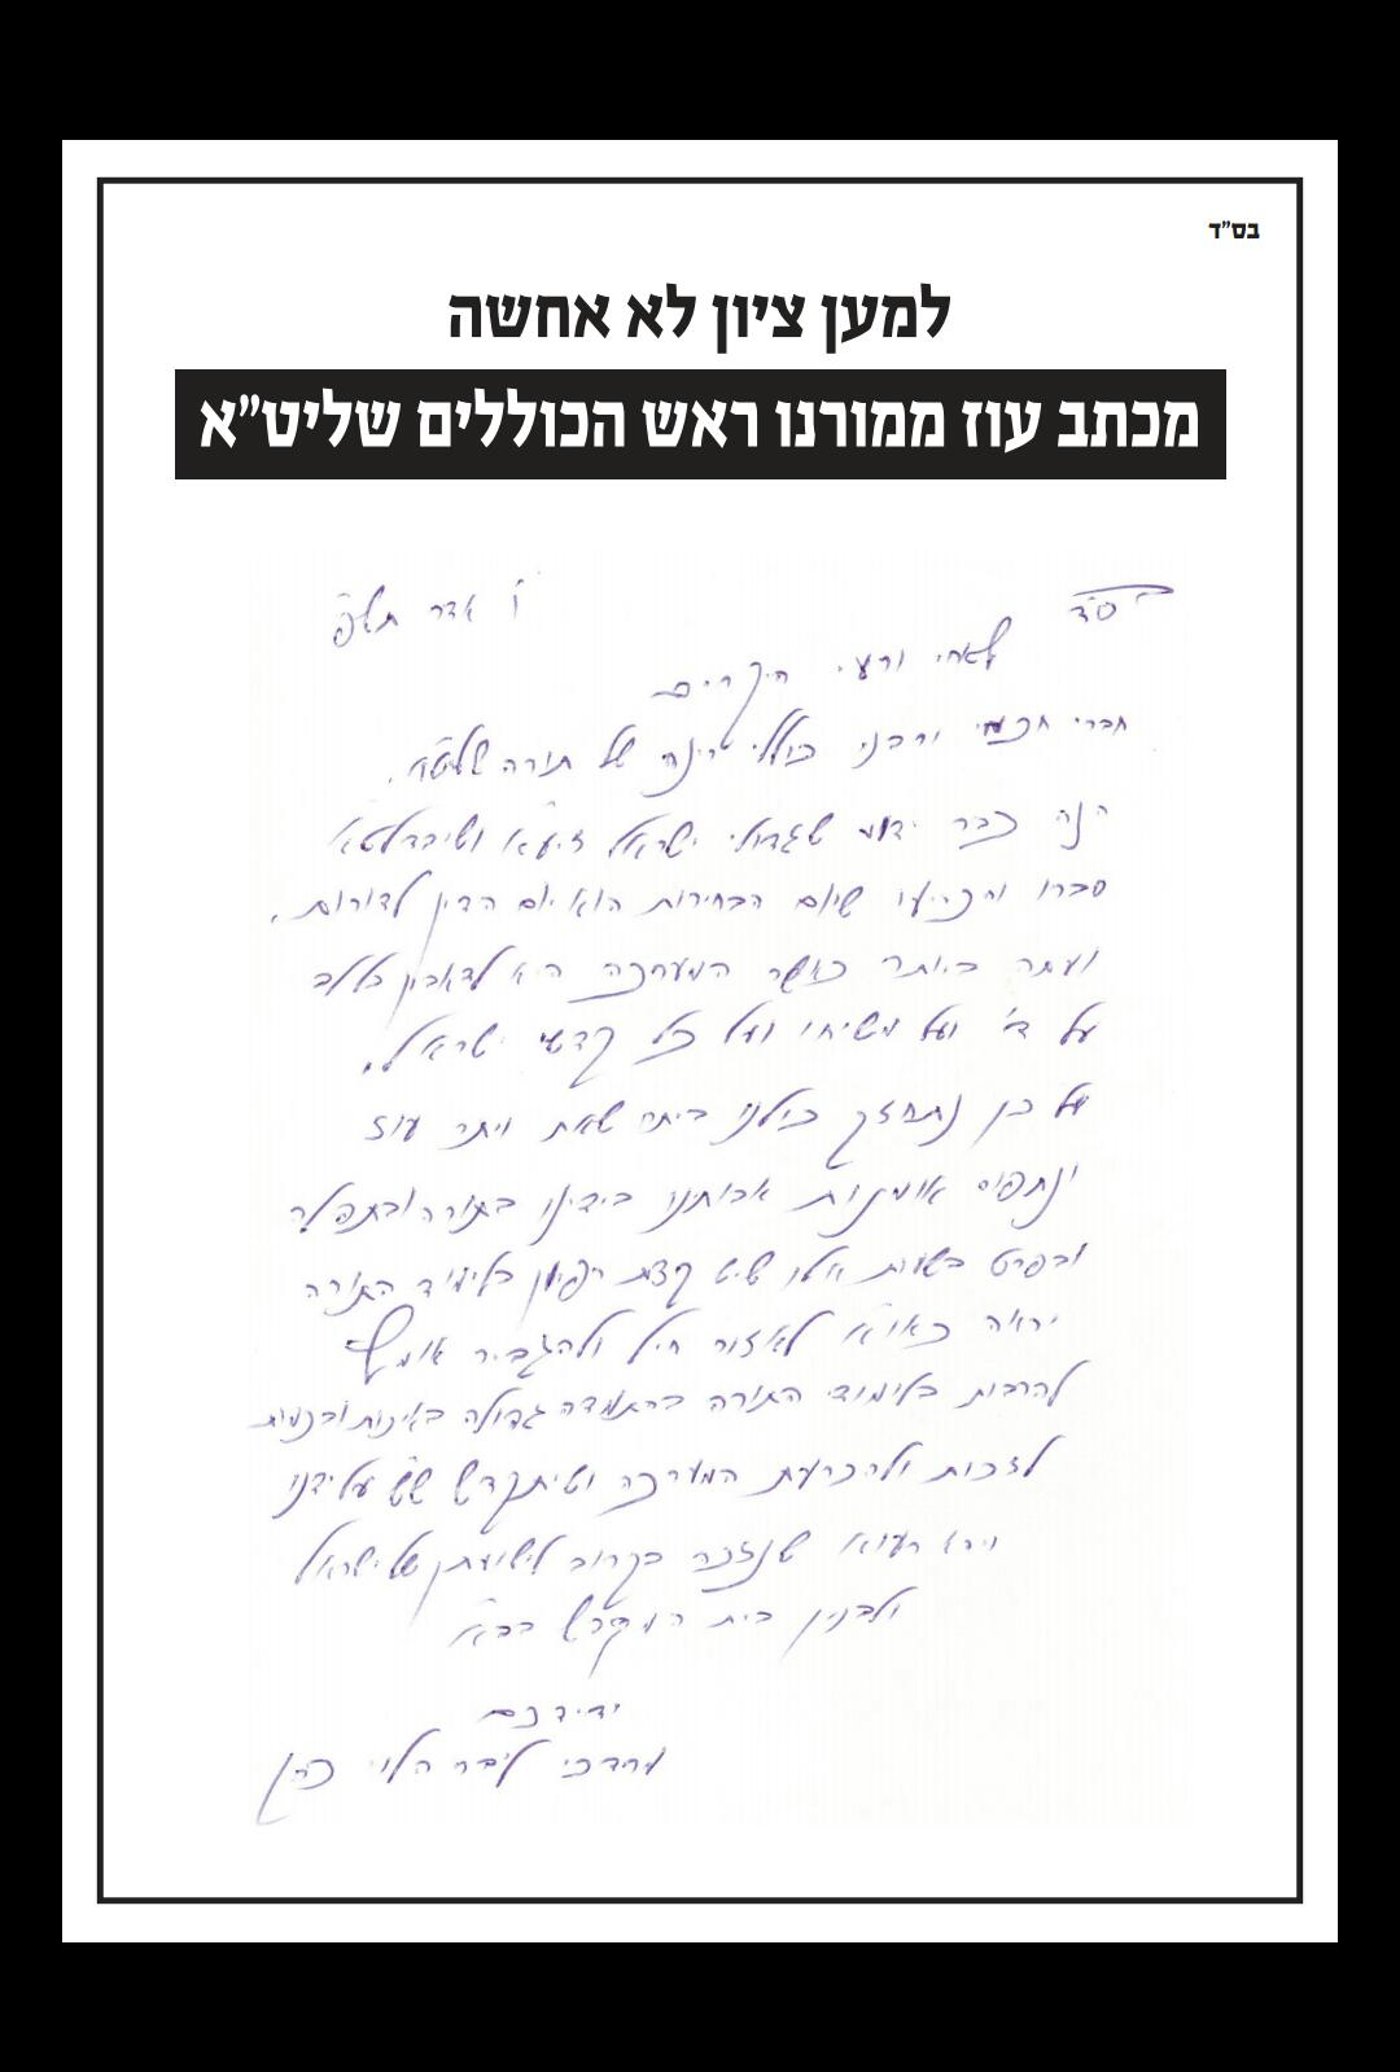 בס"ד
למען ציון לא אחשה
מכתב עוז ממורנו ראש הכוללים שליט"א
בס"ד
ו' אדר תש"פ
לאחי ורעי היקרים
חברי חכמי ורבני כוללי רינה של תורה שליט"א.
הנה כבר ידוע שגדולי ישראל זיע"א ושיבדלט"א
סברו והכריעו שיום הבחירות הוא יום הדין לדורות.
ועתה ביותר כאשר המערכה היא
על ד' ועל משיחו ועל כל קדשי ישראל.
על כן נתחזק כולנו ביתר שאת ויתר עוז
ונתפוס אומנות אבותנו בידינו בתורה ובתפלה
ובפרט בשעות אלו שיש קצת רפיון בלימוד התורה
יראה כאו"א לאזור חיל ולהגביר אומץ
להרבות בלימודי התורה בהתמדה גדולה באיכות ובכמות
לזכות ולהכרעת המערכה ושיתקדש ש"ש על ידנו
ויהא רעוא שנזכה בקרוב לישועתן של ישראל
ולבנין בית המקדש בב"א
ידידכם
מרדכי ליבר הלוי כהן